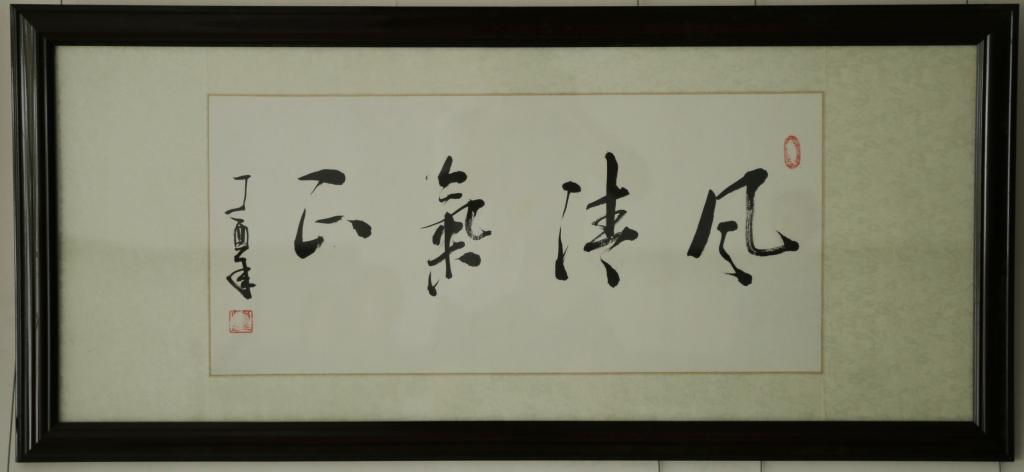 风清氣正
丁酉年